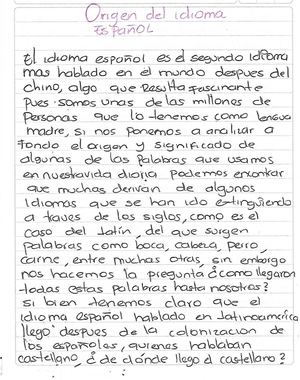 Origen del idioma
Español
El idioma español es el segundo idioma
mas hablado en el mundo despues del
chino, algo que resulta fascinante
pues somos unas de las millones de
personas que lo tenemos como lengua
madre, si nos ponemos a analizar a
fondo el origen y significado de
algunas de las palabras que usamos
en nuestra vida diaria podemos encontrar
que muchas derivan de algunos
idiomas que se han ido extinguiendo
a traves de los siglos, como es el
caso del latín, del que surgen
palabras como boca, cabeza, perro,
carne, entre muchas otras, sin embargo
nos hacemos la pregunta ¿como llegaron
todas estas palabras hasta nosotros?
si bien tenemos claro que el
idioma español hablado en latinoamérica
llego despues de la colonizacion de
los españoles, quienes hablaban
castellano, ¿de dónde llego el castellano?